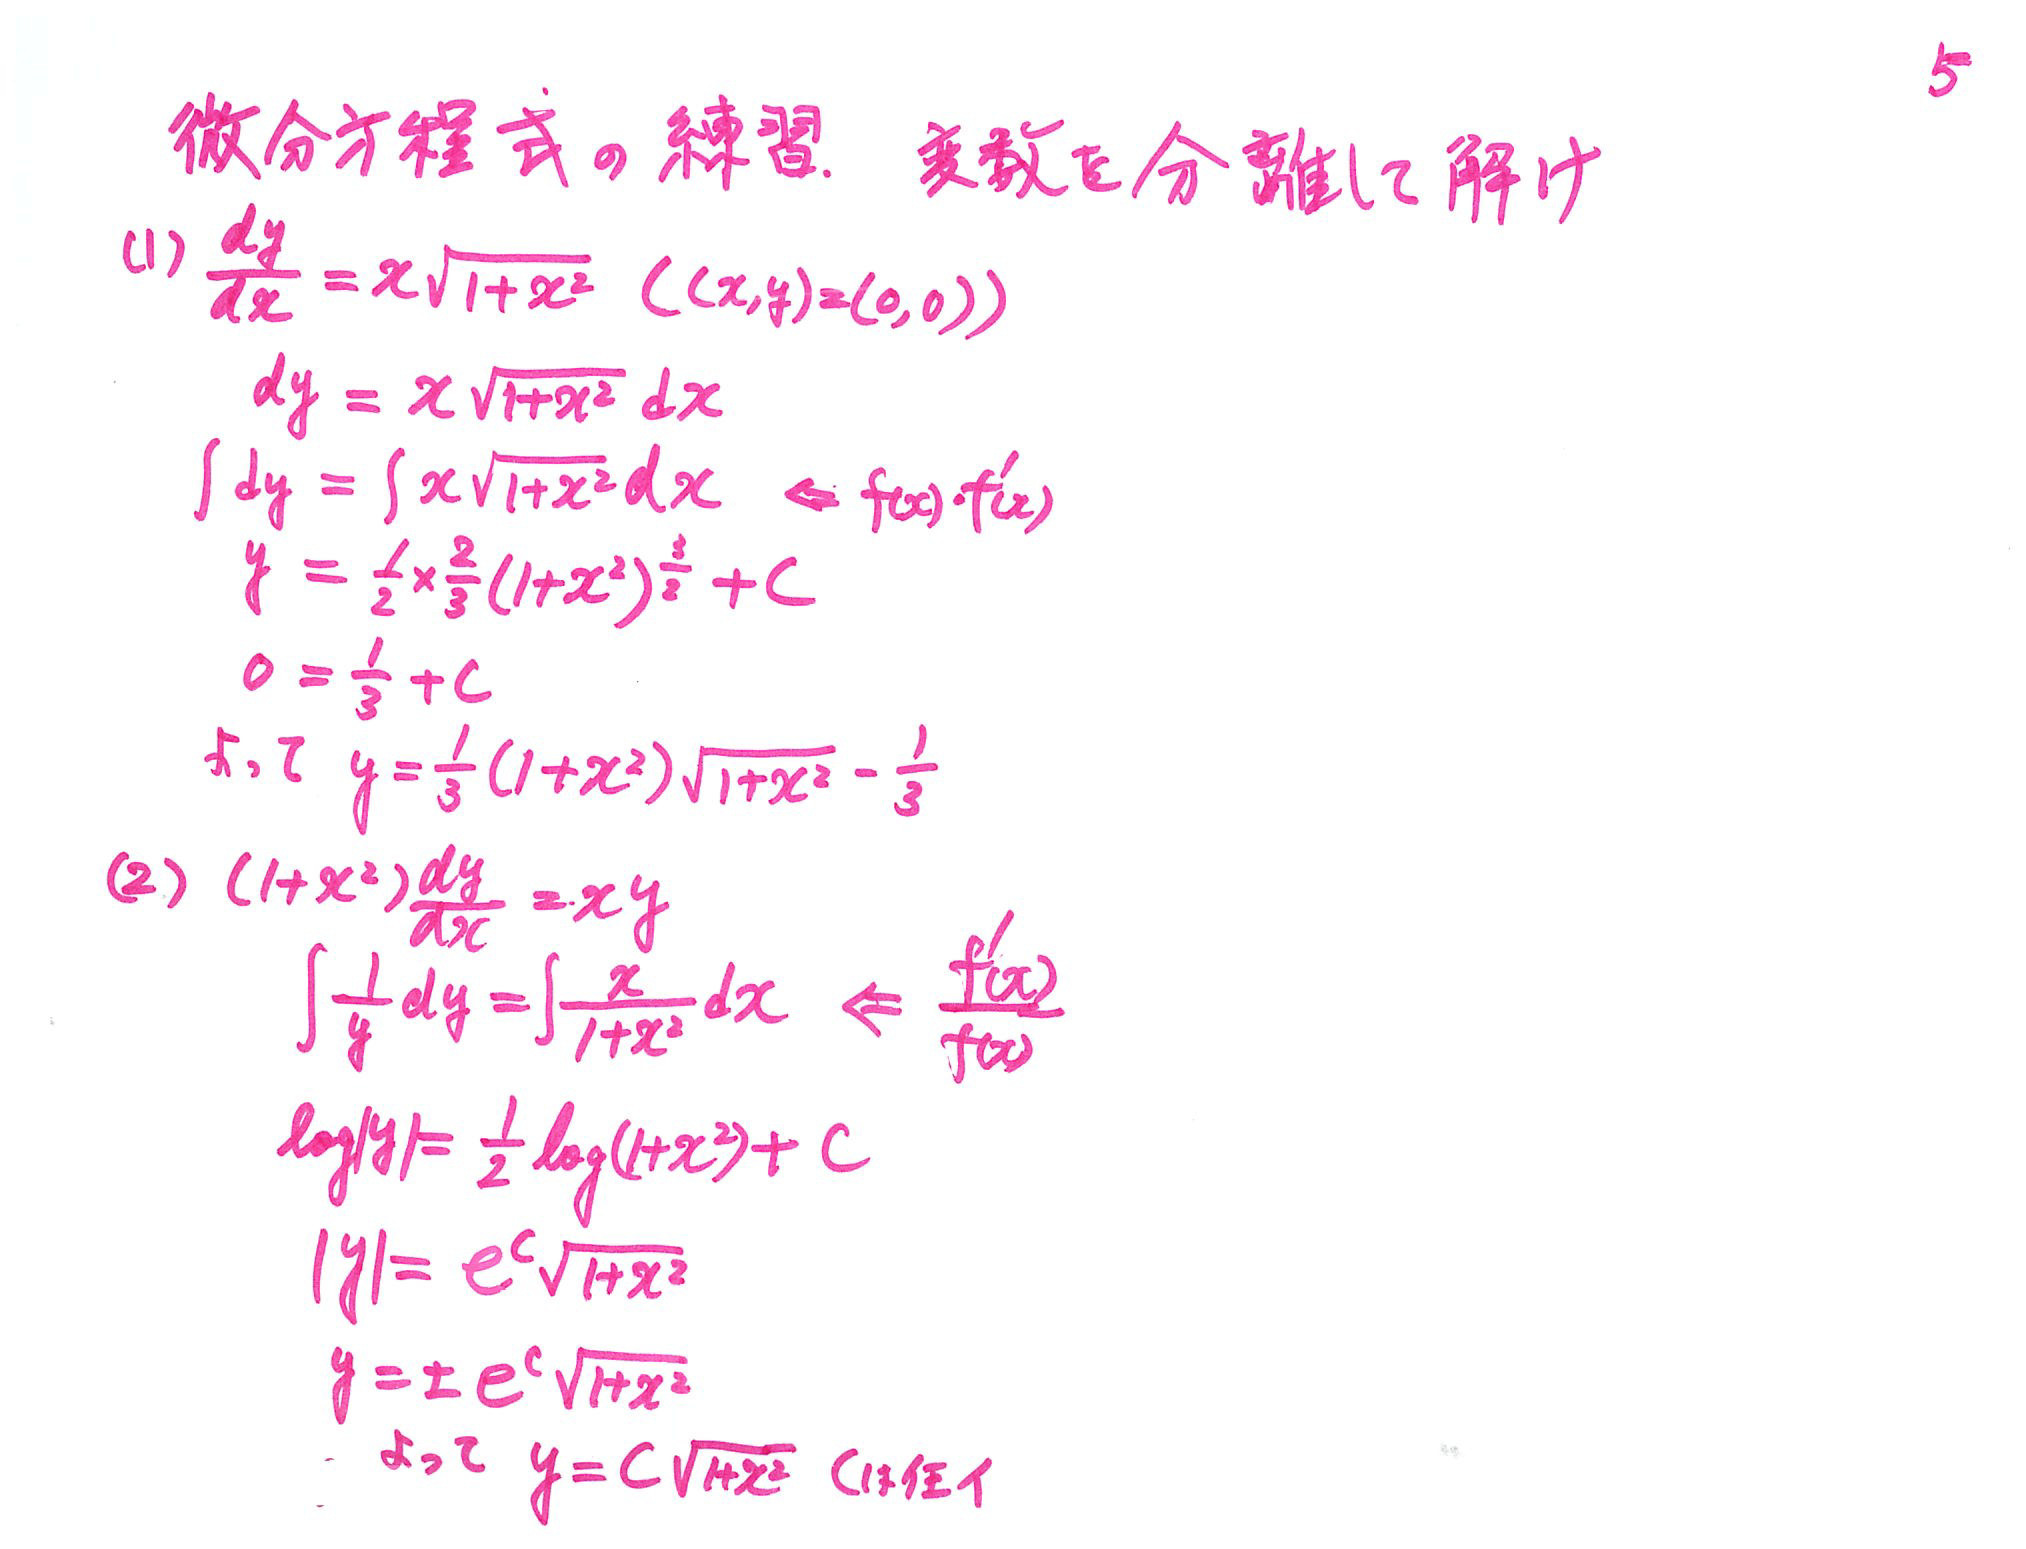 5
微分方程式の練習. 変数を分離して解け
(1) dy/dx = x√(1+x²) ((x,y)=(0,0))
dy = x√(1+x²) dx
∫dy = ∫x√(1+x²) dx ⇐ f(x)・f'(x)
y = 1/2 × 2/3 (1+x²)^(3/2) + C
0 = 1/3 + C
よって y = 1/3 (1+x²)√(1+x²) - 1/3
(2) (1+x²) dy/dx = xy
∫ 1/y dy = ∫ x/(1+x²) dx ⇐ f'(x)/f(x)
log|y| = 1/2 log(1+x²) + C
|y| = e^c √(1+x²)
y = ± e^c √(1+x²)
よって y = C√(1+x²) Cは任イ